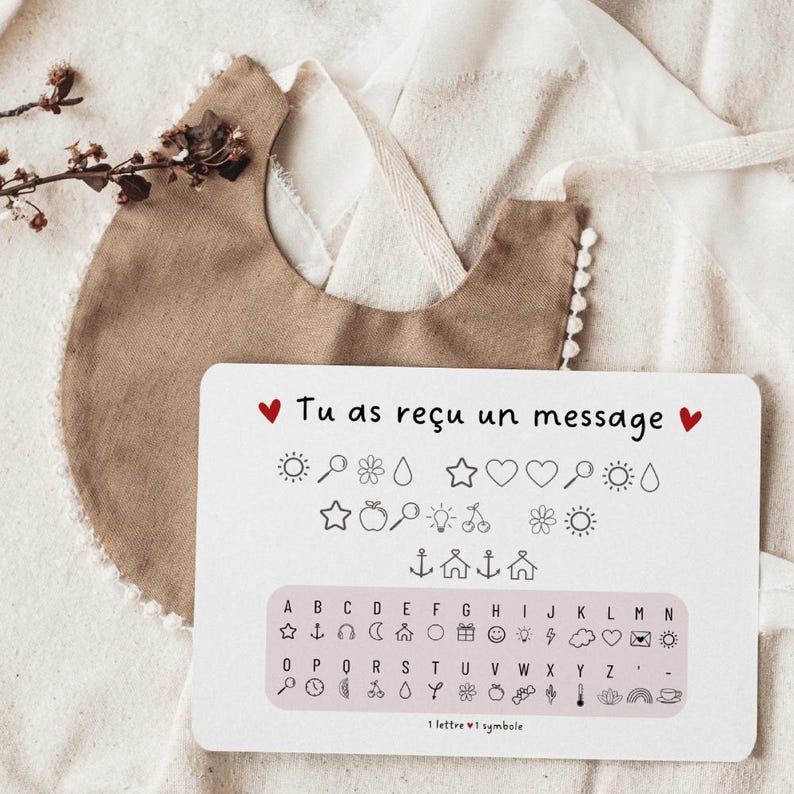 Tu as reçu un message
A B C D E F G H I J K L M N
O P Q R S T U V W X Y Z ' -
1 lettre ♥ 1 symbole